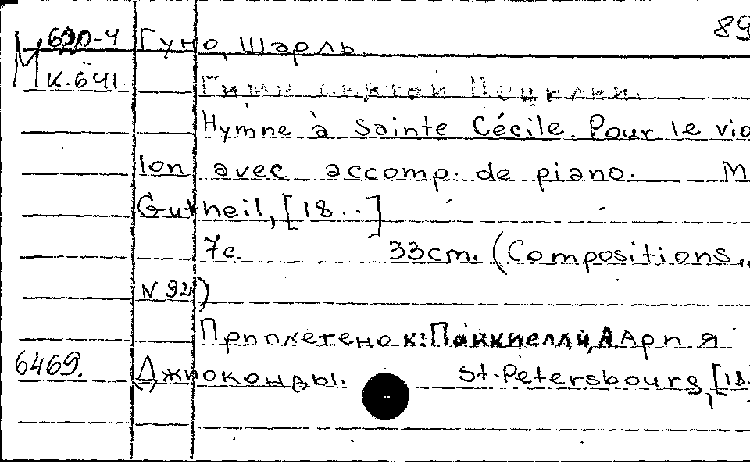 М 620-4 Гуно, Шарль. 89
К.641 Гимн святой Цецилии.
Hymne à Sainte Cécile. Pour le vio
lon avec accomp. de piano. M
Gutheil, [18..]
7с. 33cm. (Compositions..
N 92)
Приплетено к: Понкиелли, А Ария
6469. Джиоконды. St.-Petersbourg, [18.